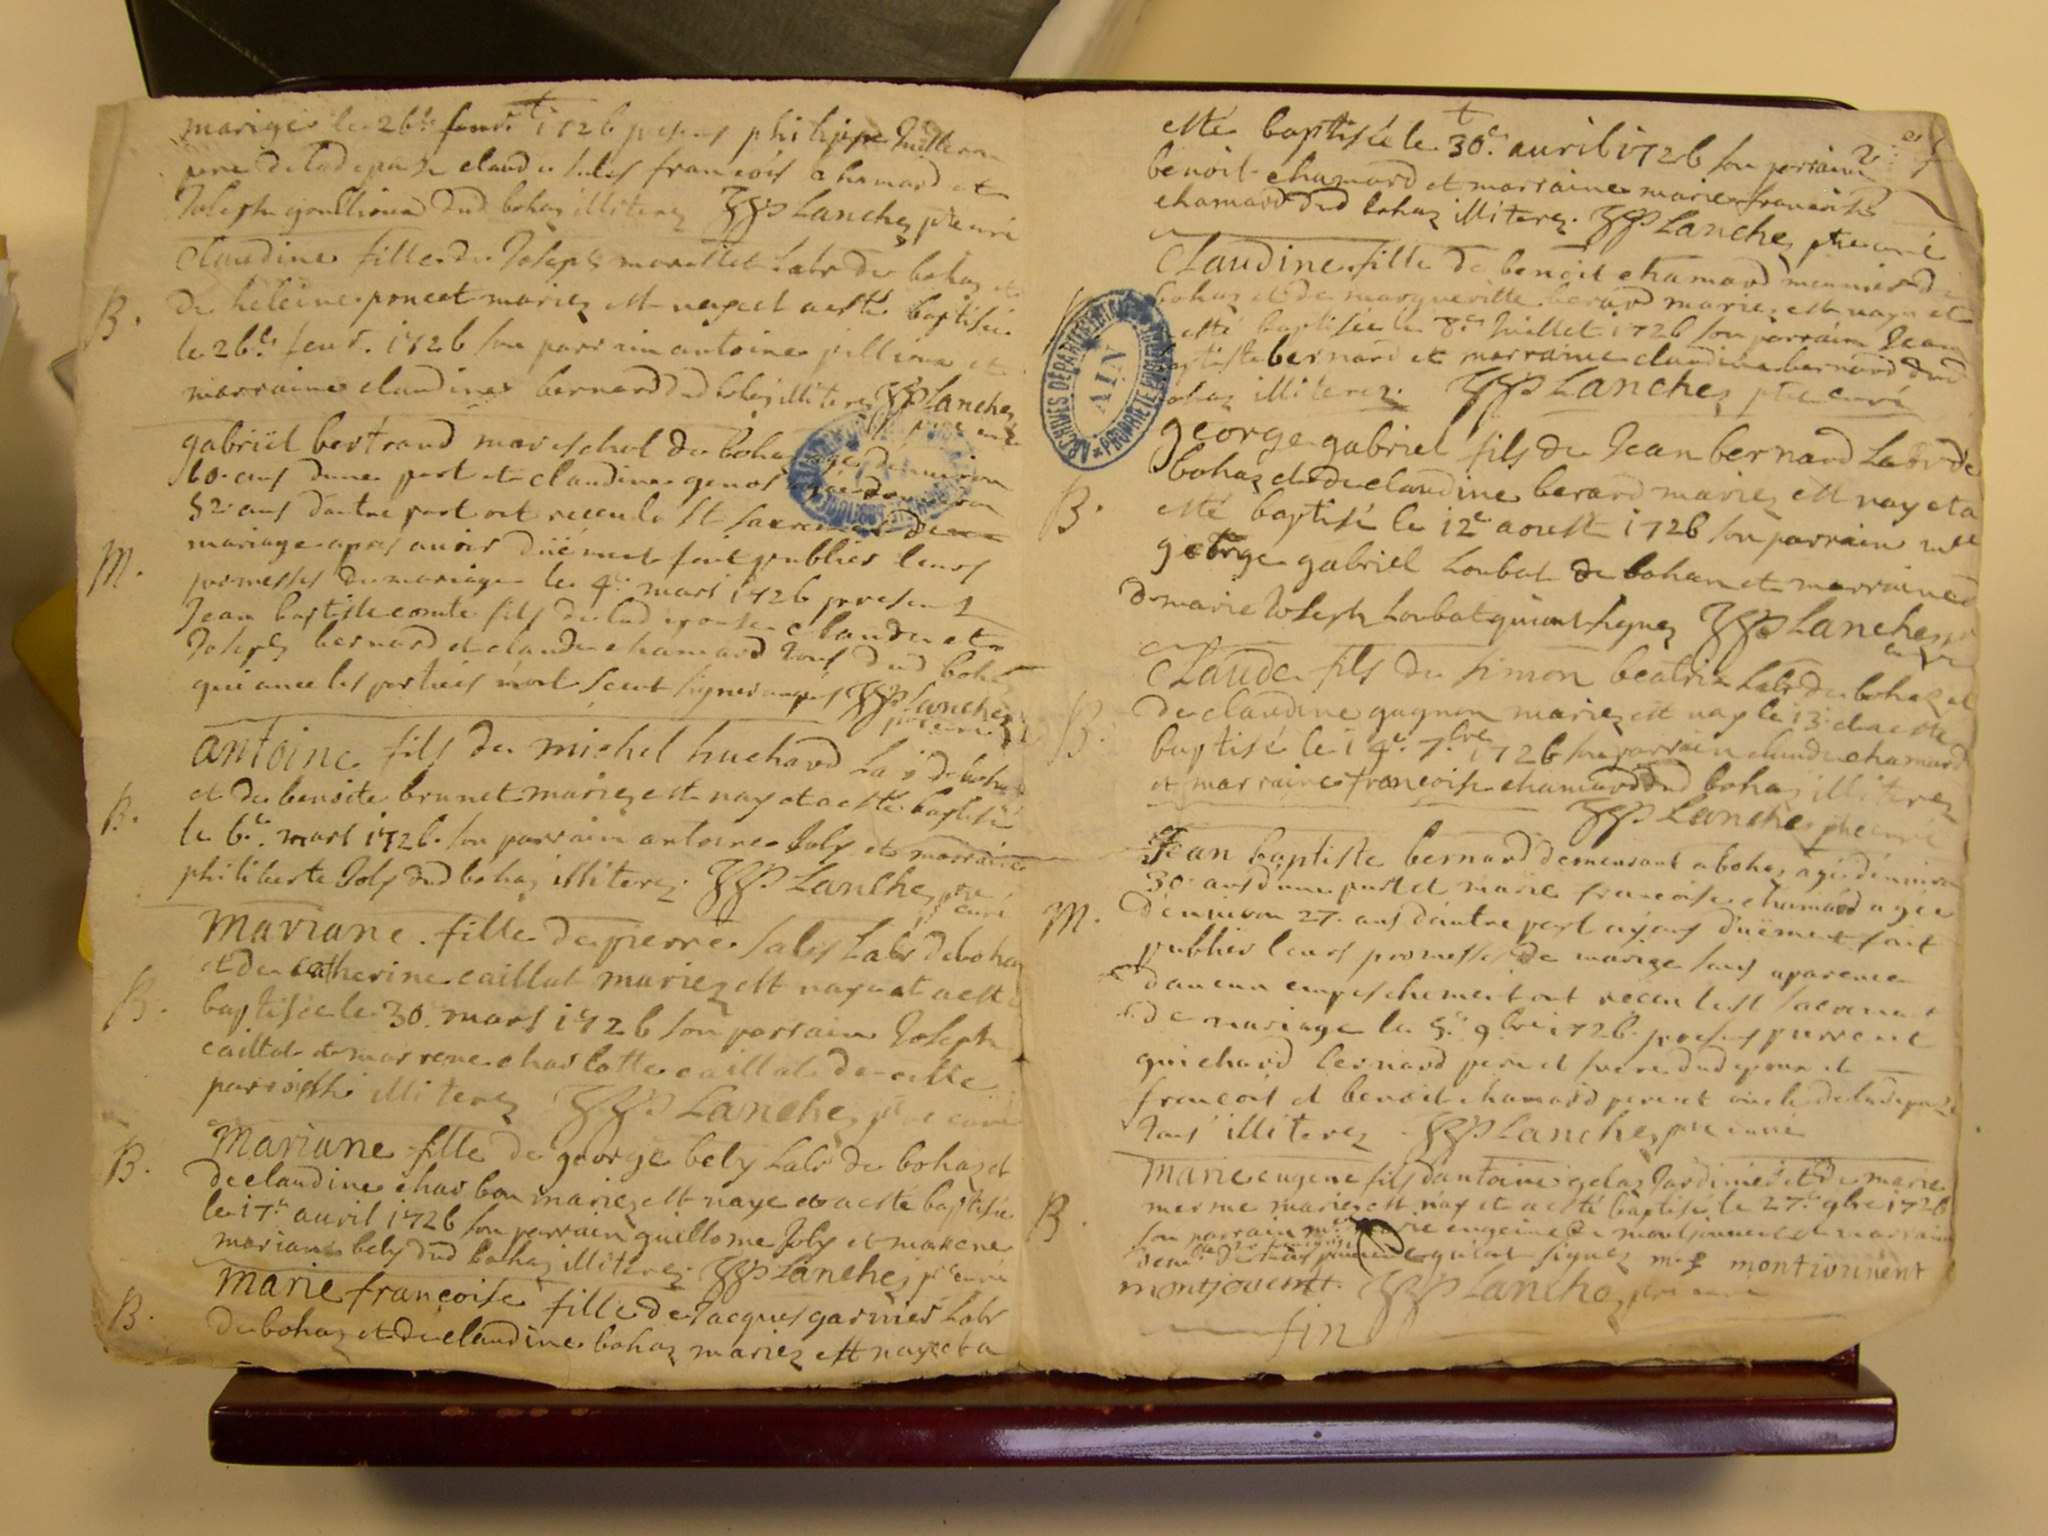 mariage le 26e feuv. 1726 presens philippe
pere de lad epouse claude Sales françois chamard et
Joseph dud bohaz illiterez Lanchez ptre curé
Claudine fille de Joseph morellet Labr de bohaz et
B. de heleine poncet mariez est nayeet aesté baptisée
le 26e feuv. 1726 son parrain antoine pillion et
marraine claudine bernard dud bohaz illiterez Lanchez
ptre curé
gabriel bertrand mareschal de bohaz agé denuiron
60 ans dune part et claudine genos agée denuiron
52 ans dautre part ont receu le St Sacrement de
mariage apres auoir düement fait publier leurs
M. promesses de mariage le 4e mars 1726 presens
Jean baptiste comte fils de lad epouse claude et
Joseph bernard et claude chamard tous dud bohaz
qui auec les parties n'ont sceut signer enquis Lanchez
ptre curé
antoine fils de michel huchard Labr de bohaz
et de benoite brunet mariez est nay et a esté baptisé
B. le 6e mars 1726 son parrain antoine Joly et marraine
philiberte Joly dud bohaz illiterez Lanchez ptre
curé
Mariane fille de pierre Sales Labr debohaz
et de catherine caillat mariez est nayeet aesté
B. baptisée le 30 mars 1726 son parrain Joseph
caillat et marrene charlotte caillat de cette
parroisse illiterez Lanchez ptre curé
Mariane fille de george bely Labr de bohaz et
B. de claudine charbon mariez est naye et a esté baptisée
le 17e auril 1726 son parrain guillome Joly et marrene
mariane bely dud bohaz illiterez Lanchez ptre curé
Marie françoise fille de Jacques garnier Labr
B. de bohaz et de claudine bohaz mariez est nayeet a
esté baptisée le 30e auril 1726 son parrain
benoit chamard et marraine marie françoise
chamard dud bohaz illiterez. Lanchez ptre curé
Claudine fille de benoit chamard meunier de
bohaz et de margueritte berard mariez est naye et a
esté baptisée le 8e Juillet 1726 son parrain Jean
baptiste bernard et marraine claudine bernard dud
bohaz illiterez. Lanchez ptre curé
george gabriel fils de Jean bernard Labr de
bohaz et de claudine berard mariez est nay et a
B. esté baptisé le 12e aoust 1726 son parrain
george gabriel Loubat de bohan et marraine
marie Joseph Loubat qui ont signez Lanchez ptre
curé
Claude fils de simon beatrix Labr de bohaz et
B. de claudine gagnon mariez est nay le 13 et a esté
baptisé le 14e 7bre 1726 son parrain claude chamard
et marraine françoise chamard dud bohaz illiterez
Lanchez ptre curé
Jean baptiste bernard demeurant a bohaz agé d'enuiron
30 ans dune part et marie françoise chamard agée
M. d'enuiron 27 ans dautre part ayans düement fait
publier leurs promesses de mariage sans aparence
d'aucun empeschement ont receu le st Sacrement
de mariage le 5e 9bre 1726 presens
guichard bernard pere et frere dud epoux et
françois et benoit chamard pere et oncle de lad epouse
tous illiterez Lanchez ptre curé
Marie eugene fils d'antoine gelas Jardinier et de marie
merme mariez est nay et a esté baptisé le 27e 9bre 1726
B. son parrain marie eugeine de montjouvent et marraine
qui ont signez montiouuent
montjouent. Lanchez ptre curé
fin
ARCHIVES DÉPARTEMENTALES
AIN
PROPRIÉTÉ PUBLIQUE